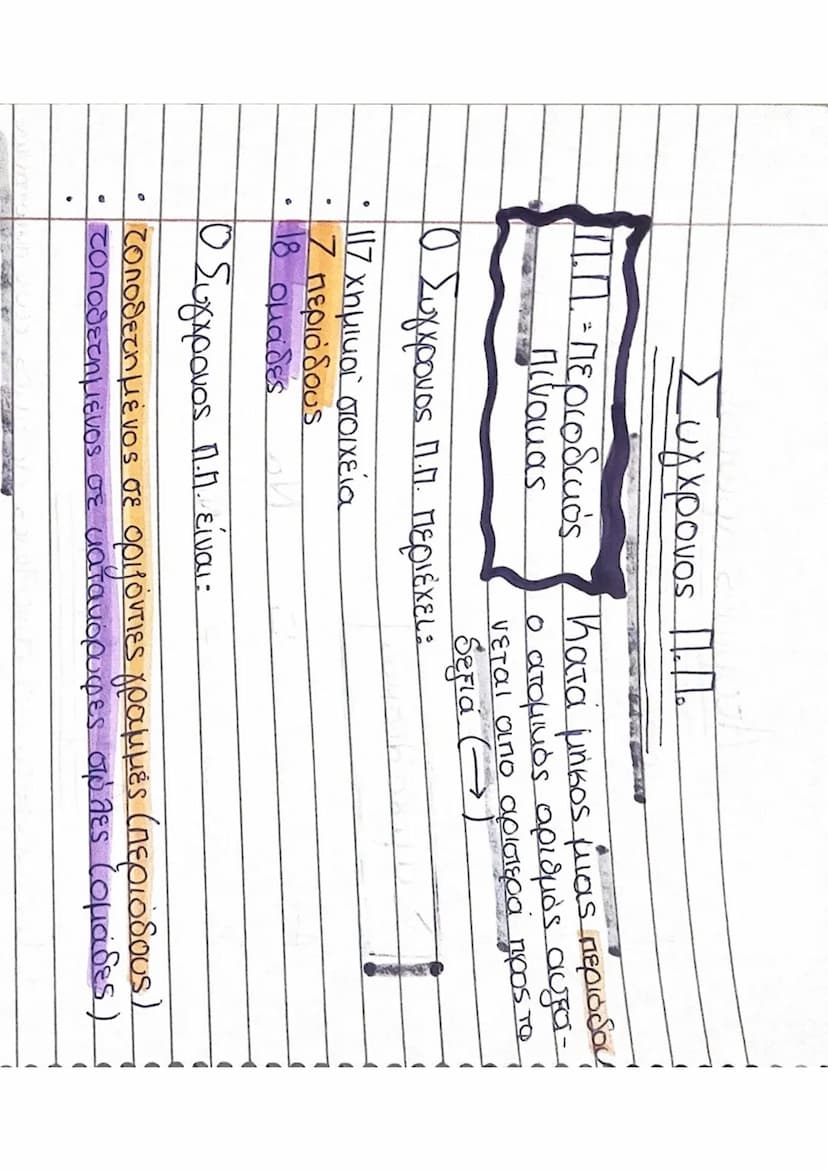 Σύγχρονος Π.Π.
Π.Π. = Περιοδικός
Πίνακας
Κατά μήκος μιας περιόδου
ο ατομικός αριθμός αυξά-
νεται απο αριστερά προς τα
δεξιά (→)
Ο Σύγχρονος Π.Π. περιέχει:
• 117 χημικοί στοιχεία
• 7 περιόδους
• 18 ομάδες
Ο Σύγχρονος Π.Π. είναι:
• τοποθετημένος σε οριζόντιες γραμμές (περιόδους)
• τοποθετημένος σε κατακόρυφες στήλες (ομάδες)
•